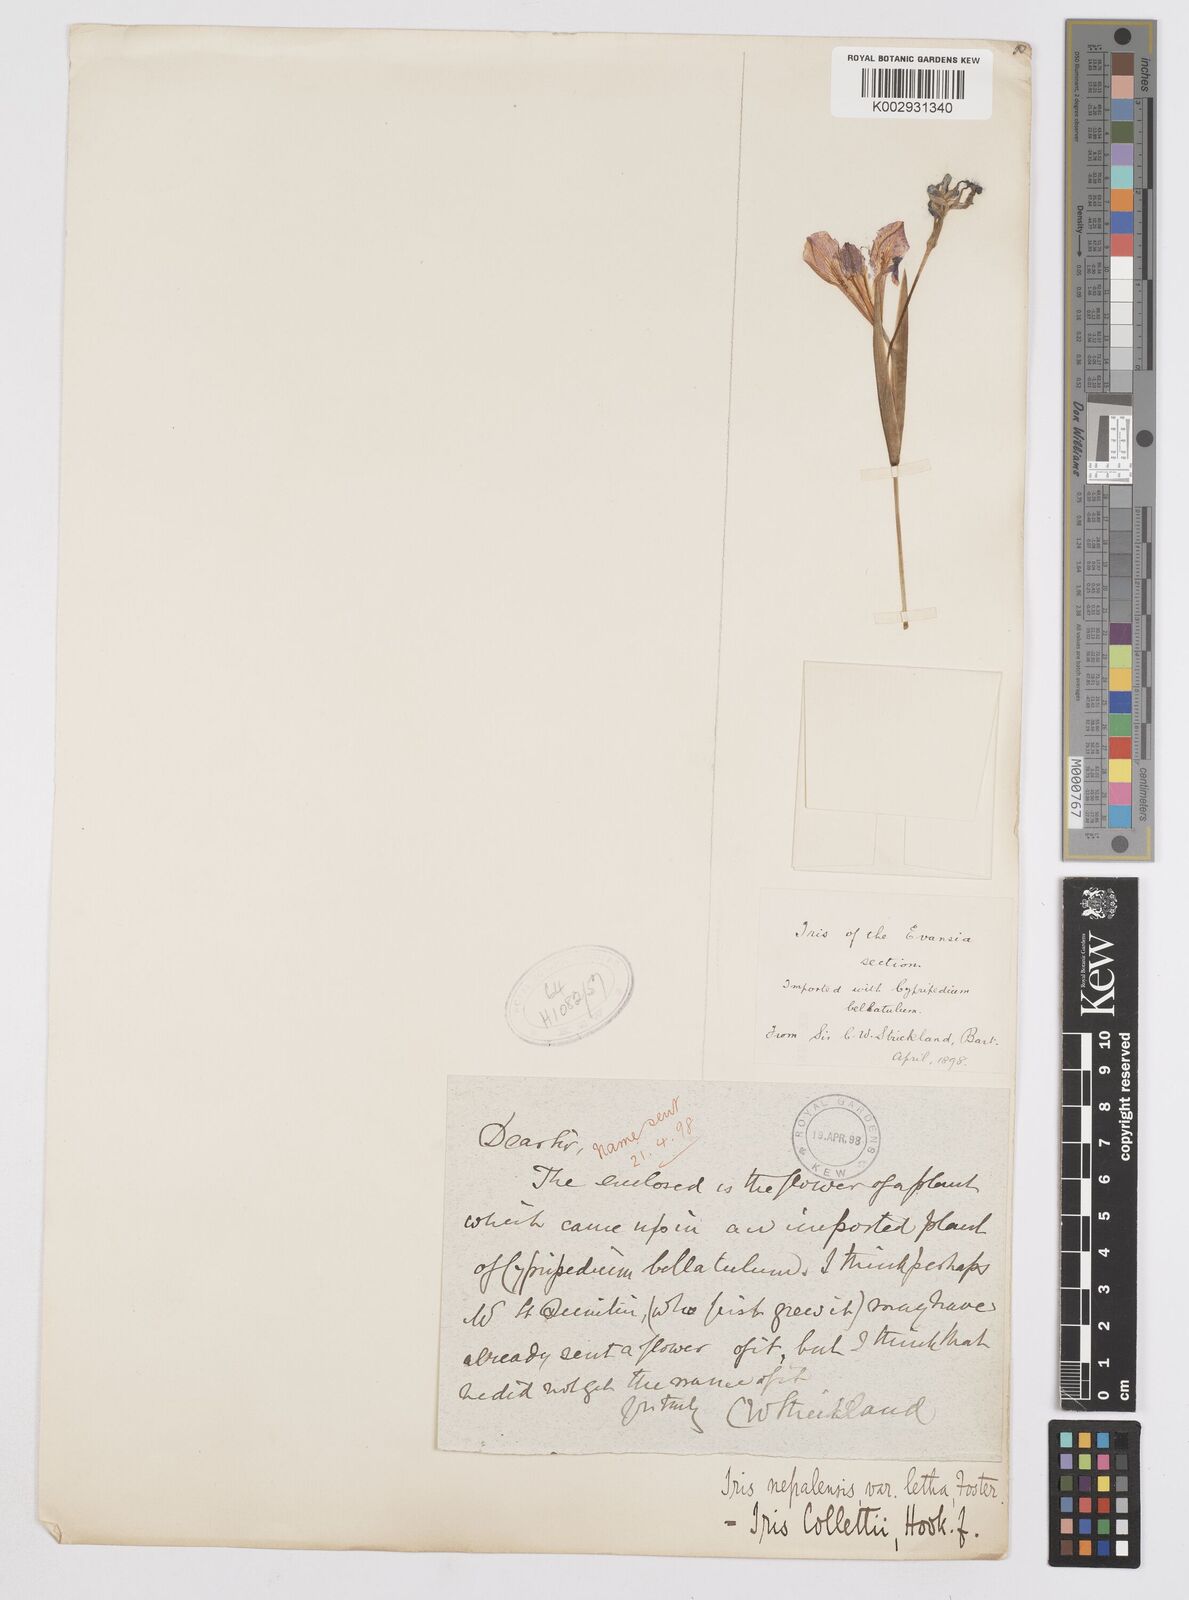 ROYAL BOTANIC GARDENS KEW
K002931340
64
H1082/57
Iris of the Evansia
section.
Imported with Cypripedium
bellatulum.
From Sir C. W. Strickland, Bart.
April, 1898.
Dear Sir,
Name sent
21. 4. 98
ROYAL GARDENS
19. APR. 98
KEW
The enclosed is the flower of a plant
which came up in an imported plant
of Cypripedium bellatulum. I think perhaps
W St Quintin, (who first grew it) may have
already sent a flower of it, but I think that
he did not get the name of it
yrs truly C W Strickland
Iris nepalensis, var. letha, Foster.
= Iris Collettii, Hook. f.
inches
centimeters
D50 Illuminant, 2 degree observer
Density
Don Williams
M000767
Kew
Royal Botanic Gardens
copyright reserved
0 1 2 3 4 5 6 7 8 9 10
cm